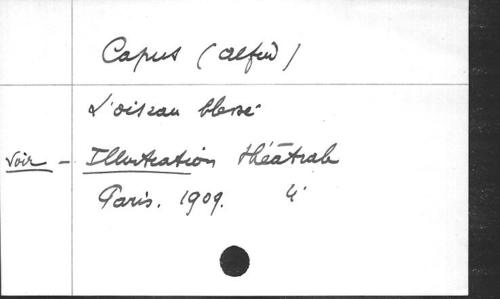 Capus (Alfred)
L'oiseau blessé
Voir - Illustration théâtrale
Paris. 1909. 4°